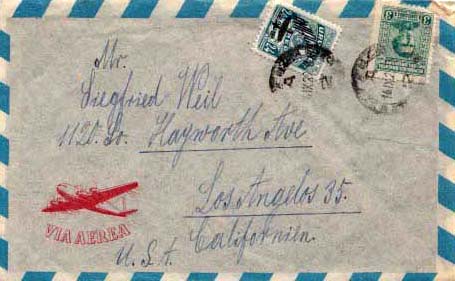 Mr.
Siegfried Weil
1120. So. Hayworth Ave
Los Angelos 35.
Californien.
U.S.A.
VIA AEREA